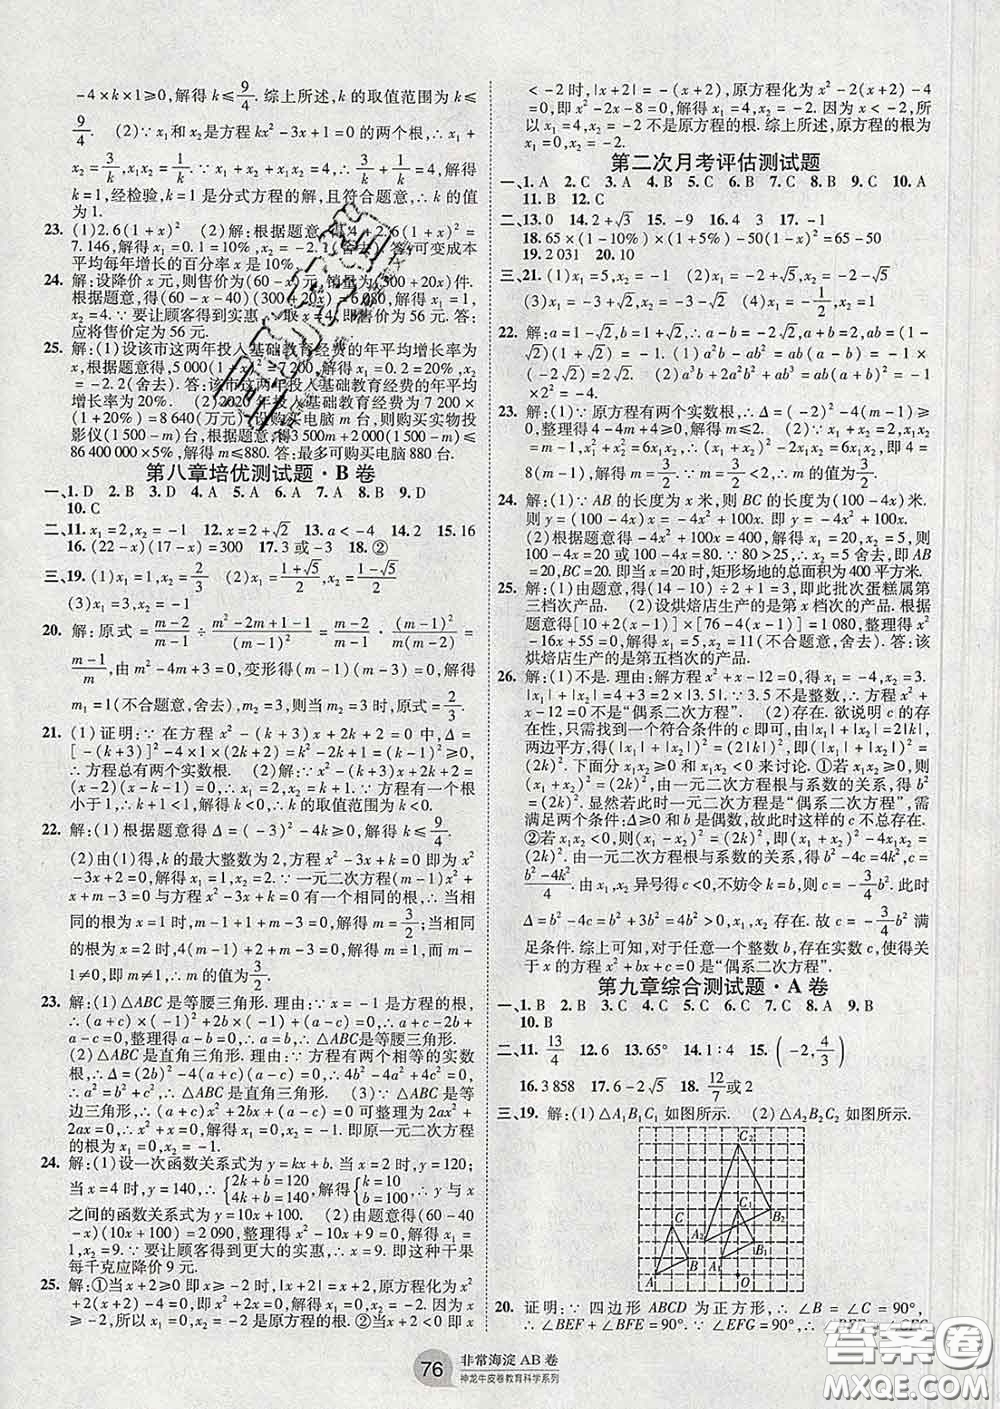 -4×k×1≥0,解得k≤9/4. 综上所述,k的取值范围为k≤
9/4. (2)∵x₁和x₂是方程kx²-3x+1=0的两个根,∴x₁+
x₂=3/k,x₁x₂=1/k. ∵x₁+x₂+x₁x₂=4,∴3/k+1/k=4,解得
k=1,经检验,k=1是分式方程的解,且符合题意,∴k的值
为1.
23. (1)2.6(1+x)² (2)解:根据题意,得4+2.6(1+x)²=
7.146,解得x₁=0.1=10%,x₂=-2.1(舍去). 答:可变成本
平均每年增长的百分率x是10%.
24. 解:设降价x元,则售价为(60-x)元,销量为(300+20x)件.
根据题意,得(60-x-40)(300+20x)=6 080,解得x₁=1,
x₂=4. ∵要让顾客得到实惠,∴取x=4,即售价为56元. 答:
应将售价定为56元.
25. 解:(1)设该市这两年投入基础教育经费的年平均增长率为
x,根据题意,得5 000(1+x)²=7 200,解得x₁=0.2=20%,x₂
=-2.2(舍去). 答:该市这两年投入基础教育经费的年平均
增长率为20%. (2)2020年投入基础教育经费为7 200×
(1+20%)=8 640(万元),设购买电脑m台,则购买实物投
影仪(1 500-m)台,根据题意,得3 500m+2 000(1 500-m)≤
86 400 000×5%,解得m≤880. 答:最多可购买电脑880台.
第八章培优测试题·B卷
一、1. D 2. B 3. D 4. B 5. C 6. B 7. D 8. D 9. D
10. C
二、11. x₁=2,x₂=-1 12. x=2±√2 13. a<-4 14. 2 15. 16
16. (22-x)(17-x)=300 17. 3或-3 18. ②
三、19. (1)x₁=2,x₂=2/3 (2)x₁=(1+√5)/2,x₂=(1-√5)/2
(3)x₁=3,x₂=-1
20. 解:原式=(m-2)/(m-1)÷(m²-2m+1-1)/(m-1)²=(m-2)/(m-1)·(m-1)²/m(m-2)=
(m-1)/m,由m²-4m+3=0,变形得(m-1)(m-3)=0,解得
m₁=1(不合题意,舍去),m₂=3,则当m₂=3时,原式=2/3.
21. (1)证明:∵在方程x²-(k+3)x+2k+2=0中,Δ=
[-(k+3)]²-4×1×(2k+2)=k²-2k+1=(k-1)²≥0,
∴方程总有两个实数根. (2)解:∵x²-(k+3)x+2k+2=
(x-2)(x-k-1)=0,∴x₁=2,x₂=k+1. ∵方程有一个根
小于1,∴k+1<1,解得k<0,∴k的取值范围为k<0.
22. 解:(1)根据题意得Δ=(-3)²-4k≥0,解得k≤9/4.
(2)由(1)得,k的最大整数为2,方程x²-3x+k=0即为x²
-3x+2=0,解得x₁=1,x₂=2. ∵一元二次方程(m-1)x²
+x+m-3=0与方程x²-3x+k=0有一个相同的根,∴当相
同的根为x=1时,m-1+1+m-3=0,解得m=3/2;当相同
的根为x=2时,4(m-1)+2+m-3=0,解得m=1,而m-1
≠0,即m≠1,∴m的值为3/2.
23. 解:(1)△ABC是等腰三角形. 理由:∵x=-1是方程的根,
∴(a+c)×(-1)²-2b+(a-c)=0,∴a+c-2b+a-
c=0,整理得a-b=0,∴a=b,∴△ABC是等腰三角形.
(2)△ABC是直角三角形. 理由:∵方程有两个相等的实数
根,∴Δ=(2b)²-4(a+c)(a-c)=0,4b²-4a²+4c²=0,
∴a²=b²+c²,∴△ABC是直角三角形. (3)∵△ABC是等
边三角形,∴(a+c)x²+2bx+(a-c)=0可整理为2ax²+
2ax=0,∵a≠0,∴x²+x=0,解得x₁=0,x₂=-1. 即原一元二次方程
的根为x₁=0,x₂=-1.
24. 解:(1)设一次函数关系式为y=kx+b. 当x=2时,y=120;
当x=4时,y=140,∴{2k+b=120 4k+b=140,解得{k=10 b=100,∴y与x
之间的函数关系式为y=10x+100. (2)由题意得(60-40
-x)(10x+100)=2 090,整理得x²-10x+9=0,解得x₁=1,
x₂=9. ∵要让顾客得到更大的实惠,∴x=9. 即这种干果
每千克应降价9元.
25. 解:①当x+2≥0即x≥-2时,|x+2|=x+2,原方程化为x²
+2(x+2)-4=0,即x²+2x=0,解得x₁=0,x₂=-2. ∵x≥
-2,所以x₁=0,x₂=-2都是原方程的根;②当x+2<0即x
<-2时,|x+2|=-(x+2),原方程化为x²-2(x+2)-4
=0,即x²-2x-8=0,解得x₁=4,x₂=-2. 因为x<-2,所
以x₁=4,x₂=-2不是原方程的根. 综上所述,原方程的根为
x₁=0,x₂=-2.
第二次月考评估测试题
一、1. A 2. C 3. A 4. B 5. C 6. D 7. B 8. C 9. C 10. A
11. B 12. C
二、13. 0 14. 2+√3 15. -9 16. 4 3 17. -1
18. 65×(1-10%)×(1+5%)-50(1-x)²=65-50
19. 2 031 20. 10
三、21. (1)x₁=5,x₂=-1 (2)x₁=-2+√5,x₂=-2-√5
(3)x₁=-3+√2,x₂=-3-√2 (4)x₁=-1/2,x₂=3
22. 解:a=1-√2,b=1+√2,∴a-b=-2√2,a+b=2,ab=(1-
√2)(1+√2)=-1. (1)a²b-ab²=ab(a-b)=(-1)×
(-2√2)=2√2. (2)a²b+2a²b²+ab³=ab(a+b)²=-1
×2²=-4.
23. 解:(1)∵原方程有两个实数根,∴Δ=(-2)²-4(m-1)≥
0,整理得4-4m+4≥0,解得m≤2.
8(m-1),解得m=3/2. ∵m=3/2<2,∴m的值为3/2.
24. 解:(1)∵AB的长度为x米,则BC的长度为(100-4x)米.
则y=(100-4x)x=-4x²+100x. 即y=-4x²+100x.
(2)根据题意得-4x²+100x=400,解得x₁=20,x₂=5. 则
100-4x=20或100-4x=80. ∵80>25,∴x=5舍去,即AB
=20,BC=20. 当x=20时,矩形场地的总面积为400平方米.
25. 解:(1)根据题意,得(14-10)÷2+1=3,即此批次蛋糕属第
三档次产品. (2)设烘焙店生产的是第x档次的产品. 根据
题意得[10+2(x-1)]×[76-4(x-1)]=1 080,整理得x²
-16x+55=0,解得x₁=5,x₂=11(不合题意,舍去). 答:该
烘焙店生产的是第五档次的产品.
26. 解:(1)不是. 理由:解方程x²+x-12=0,得x₁=-4,x₂=3.
|x₁|+|x₂|=4+3=2×|3.5|. ∵3.5不是整数,∴方程x²+
x-12=0不是“偶系二次方程”. (2)存在. 欲说明c的存
在性,只需找到一个符合条件的c即可,由|x₁|+|x₂|=2|k|,
两边平方,得(|x₁|+|x₂|)²=(2|k|)²,即(|x₁|+|x₂|)²
=(2k)². 下面分x₁x₂≥0和x₁x₂<0来讨论. ①若x₁x₂≥0,则
(x₁+x₂)²=(2k)². 由一元二次方程根与系数的关系,得b²
=(2k)². 显然若此时一元二次方程是“偶系二次方程”,需
满足两个条件:Δ≥0和b是偶数,故此时这样的c不总存在.
②若x₁x₂<0,则(x₁-x₂)²=(2k)²,即(x₁+x₂)²-4x₁x₂=
(2k)². 由一元二次方程根与系数的关系,得b²-4c=4k²,c=
(b²-4k²)/4. 由x₁,x₂异号得c<0,不妨令k=b,则c=-3/4b². 此时
Δ=b²-4c=b²+3b²=4b²>0,x₁,x₂存在. 故c=-3/4b²满
足条件. 综上可知,对于任意一个整数b,存在实数c,使得关
于x的方程x²+bx+c=0是“偶系二次方程”.
第九章综合测试题·A卷
一、1. B 2. B 3. C 4. D 5. D 6. C 7. B 8. A 9. B
10. B
二、11. 13/4 12. 6 13. 65° 14. 1:4 15. (-2,4/3)
16. 3 858 17. 6-2√5 18. 12/7或2
三、19. 解:(1)△A₁B₁C₁如图所示. (2)△A₂B₂C₂如图所示.
C₂
C C₁ B₂
A₂ B₁
B
A O
20. 证明:∵四边形ABCD为正方形,∴∠B=∠C=90°,
∴∠BEF+∠BFE=90°. ∵∠EFG=90°,∴∠BFE+
76
非常海淀AB卷
神龙牛皮卷教育科学系列
答案圈
MXQE.COM